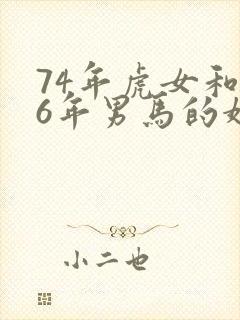 74年虎女和
6年男馬的
小二也